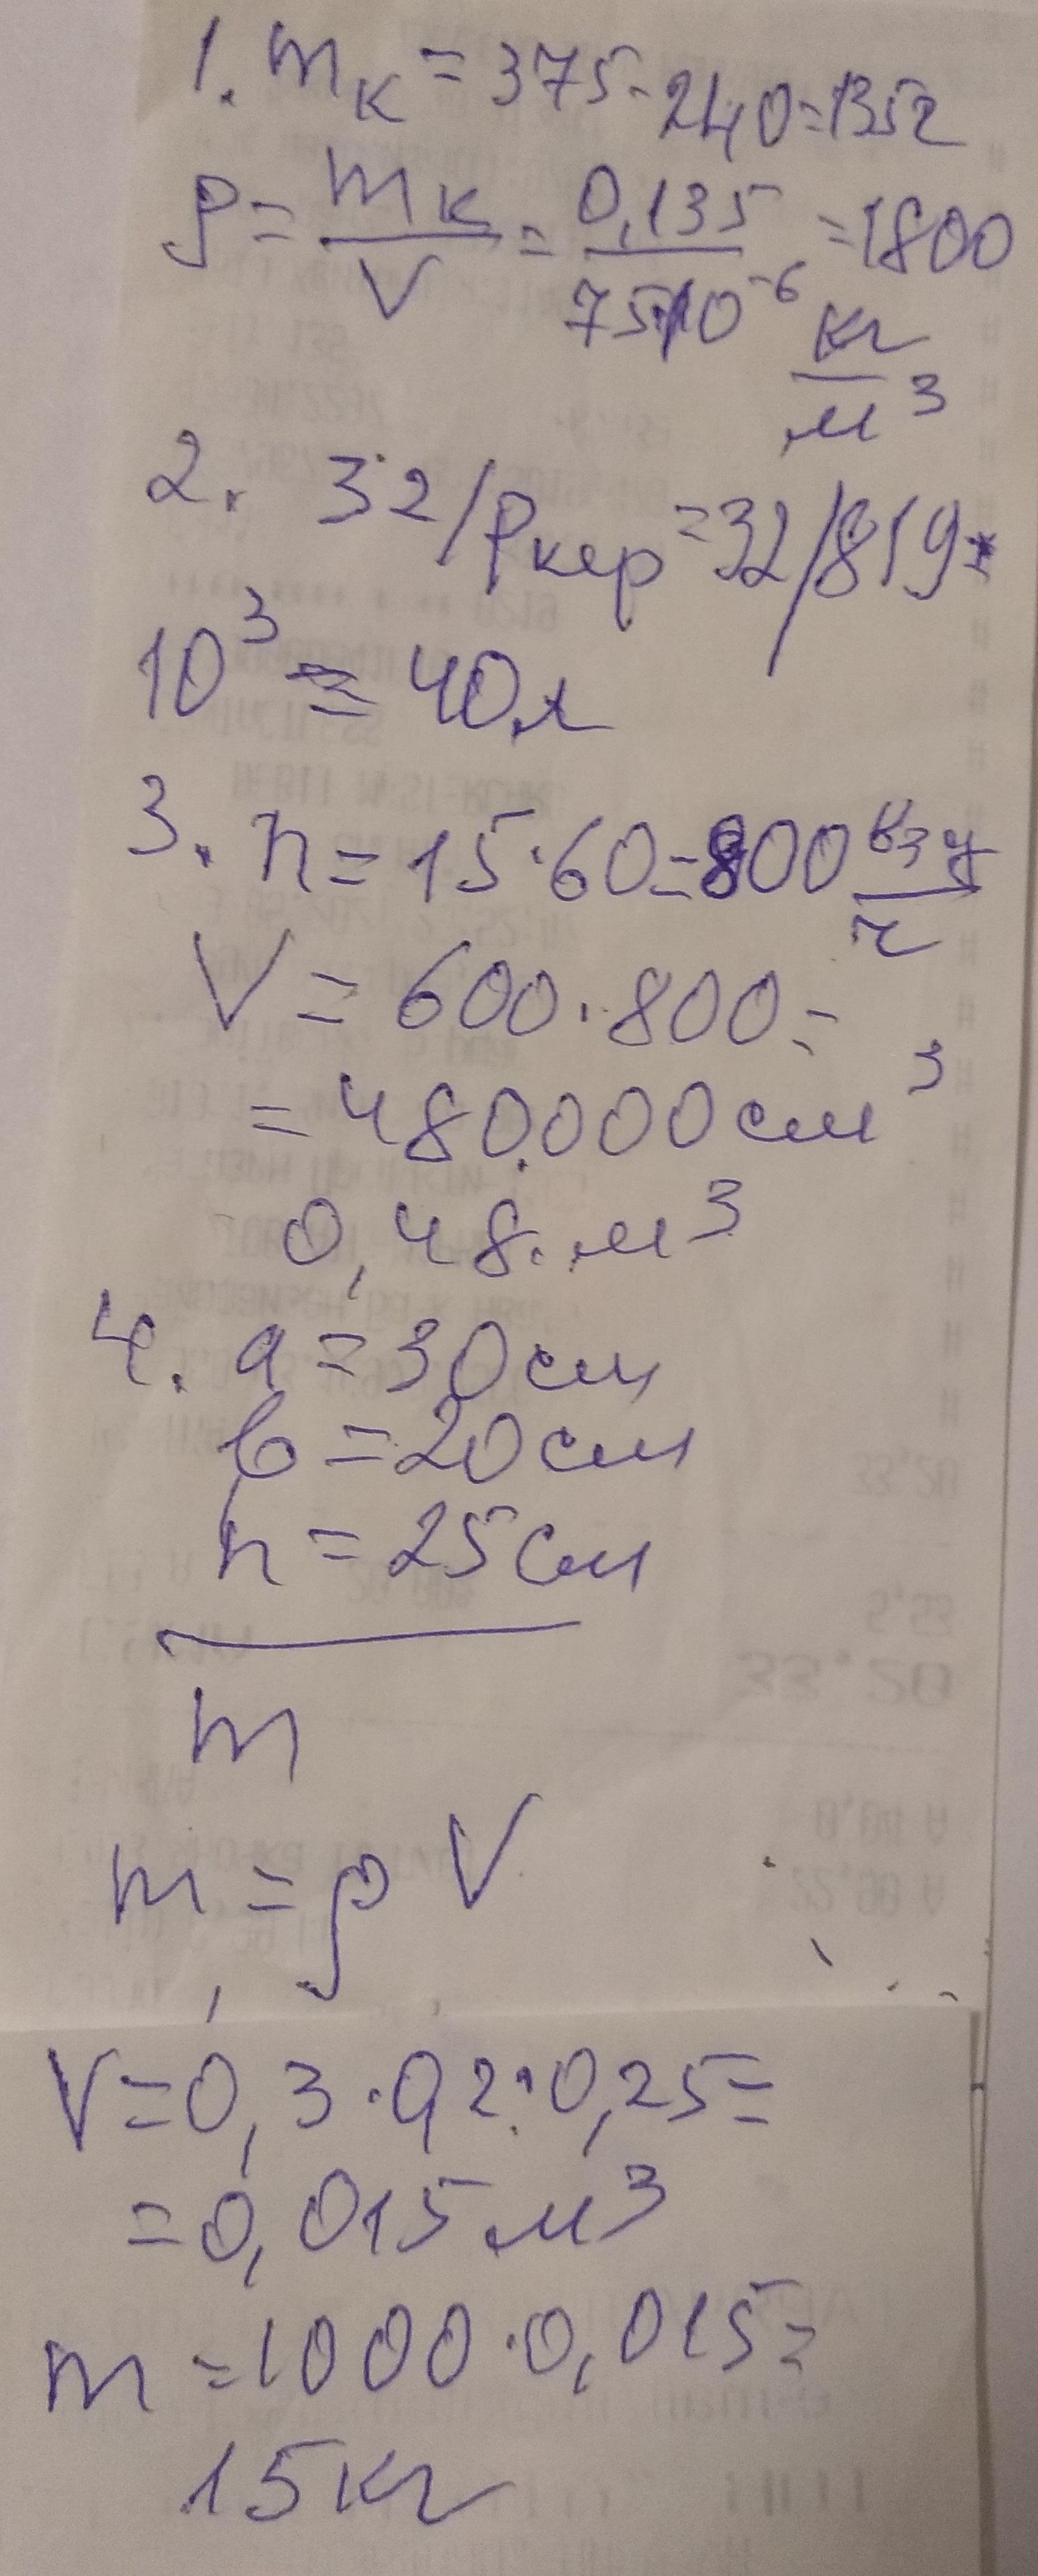 1. mк = 375 - 240 = 135 г
ρ = mк / V = 0,135 / 75·10⁻⁶ = 1800
кг / м³
2. 32/ρкер = 32/819 *
10³ ≈ 40 л
3. n = 15·60 = 800 взу / г
V = 600·800 =
= 480.000 см³
0,48 м³
4. a = 30 см
b = 20 см
h = 25 см
m
m = ρV
V = 0,3·0,2·0,25 =
= 0,015 м³
m = 1000·0,015 =
15 кг